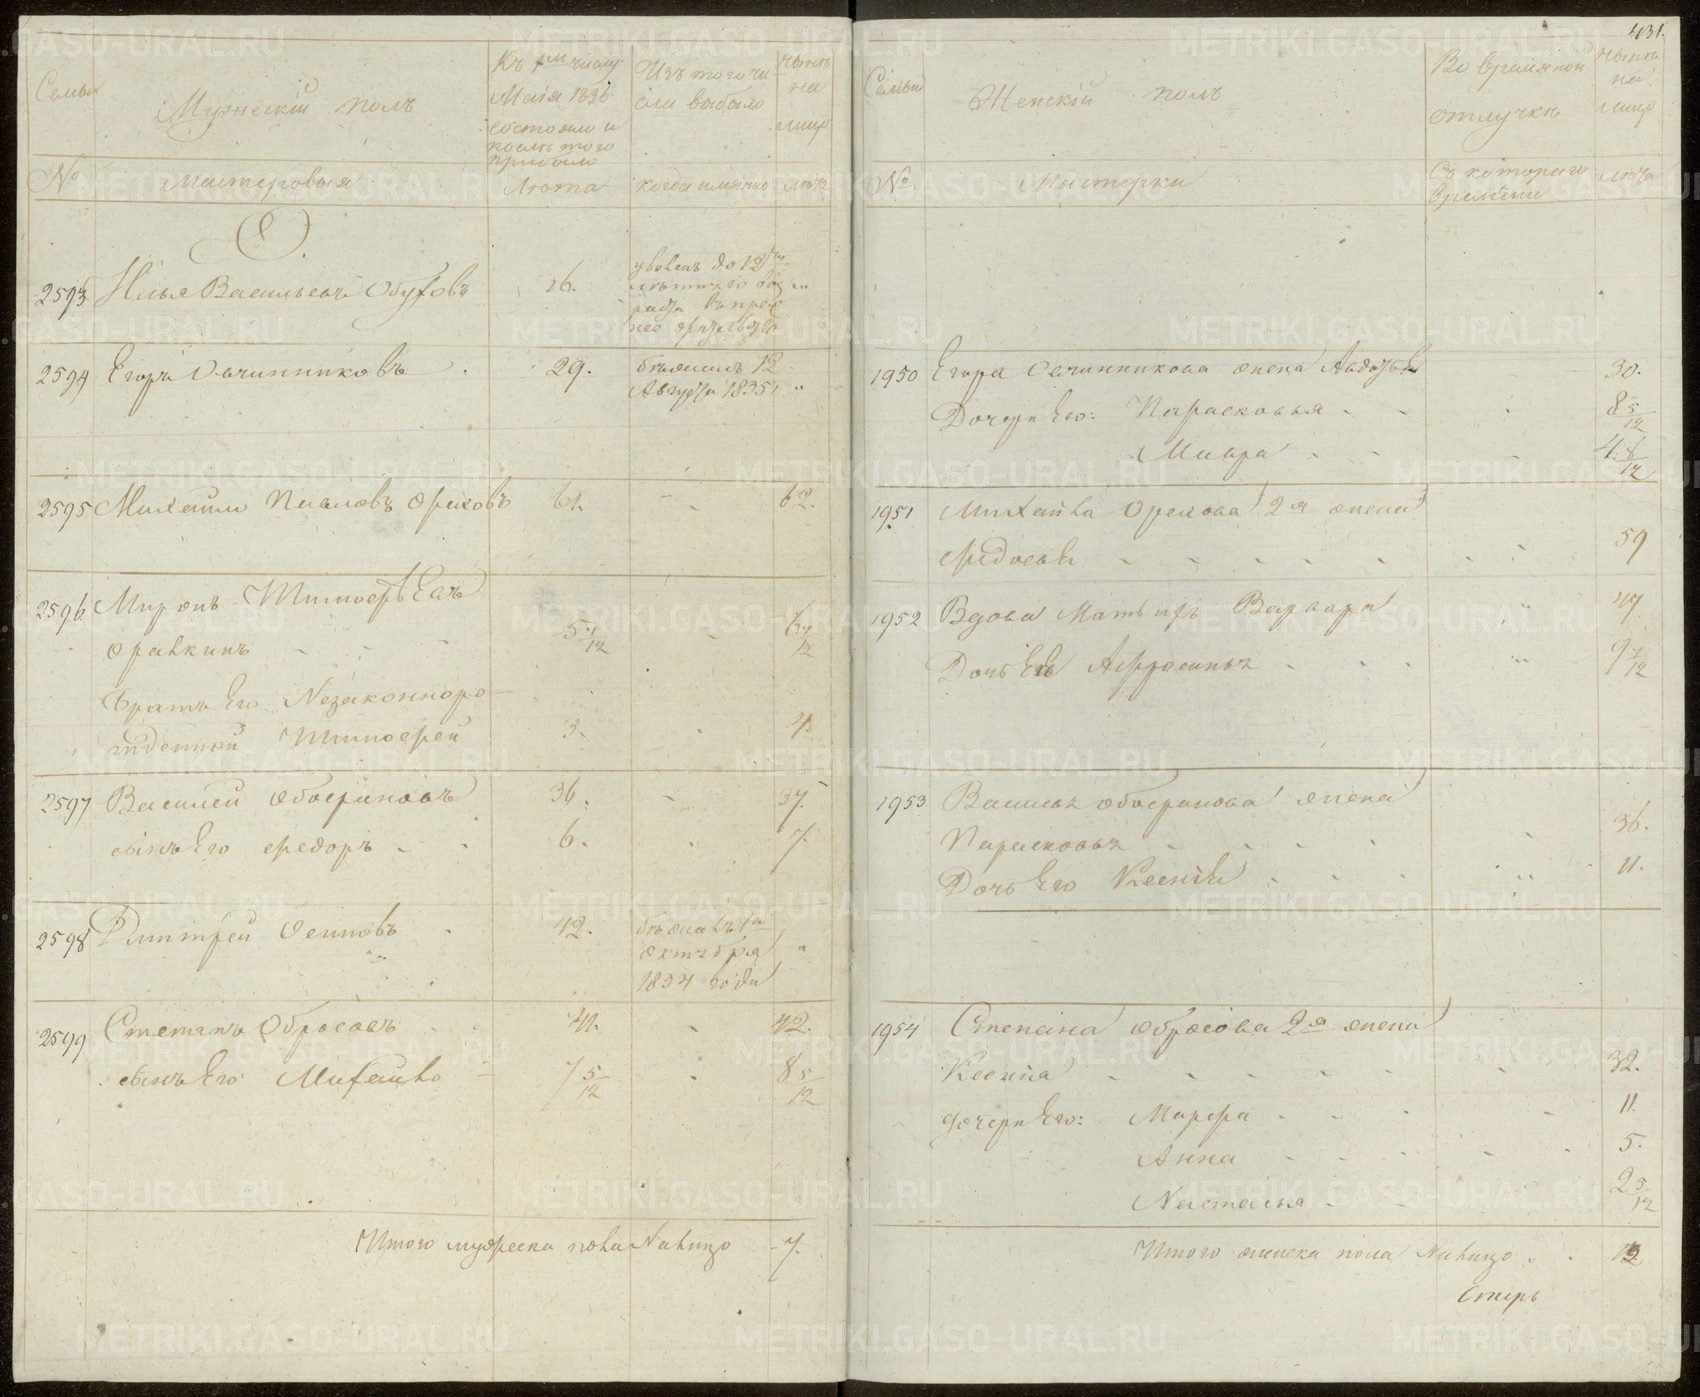 Семьи
Мужескій полъ
Къ 1му числу
Маія 1836
состояло и
послѣ того
прибыло
Изъ того чи
сла выбыло
нынѣ
на
лицо
№
Мастеровыя
Лѣта
когда имянно
лѣта
О.
2593 Илья Васильевъ Обуховъ 16.
уволенъ до 12ти
лѣтняго воз
раста
2594 Егоръ Овчинниковъ . 29.
бѣжалъ 12
Августа 1835
2595 Михайло Павловъ Ореховъ 61. - 62.
2596 Миронъ Тимофѣевъ
Оралкинъ - - - 5 7/12 - 6 7/12
Братъ Его Незаконноро
жденной Тимофей 3. - 4.
2597 Василей Обвериновъ 36. - 37.
сынъ Его Федоръ - - 6. - 7.
2598 Дмитрей Осиповъ - 42.
бѣжалъ 1го
Октября
1834 года
2599 Степанъ Обросовъ 41. - 42.
сынъ Его Михайло - 7 5/12 - 8 5/12
Итого мужеска пола Налицо - 7.
431.
Семьи
Женскій полъ
Во временной
отлучкѣ
нынѣ
на
лицо
№
Мастерки
Съ котораго
времени
лѣта
1950 Егора Овчинникова жена Авдотья 30.
Дочери Его: Парасковья - - 8 5/12
Мавра - - 4 8/12
1951 Михайла Орехова 2я жена
Федосья - - - - - 59
1952 Вдова Мать ихъ Варвара 47
Дочь Ея Афросинья - - - 9 7/12
1953 Василья Обверинова жена
Парасковья - - - - 36.
Дочь Его Ксенія - - - 11.
1954 Степана Обросова 2я жена
Ксенія - - - - - - 32.
дочери Его: Марфа - - - 11.
Анна - - - - 5.
Настасья - - 2 5/12
Итого женска пола Налицо - - 12